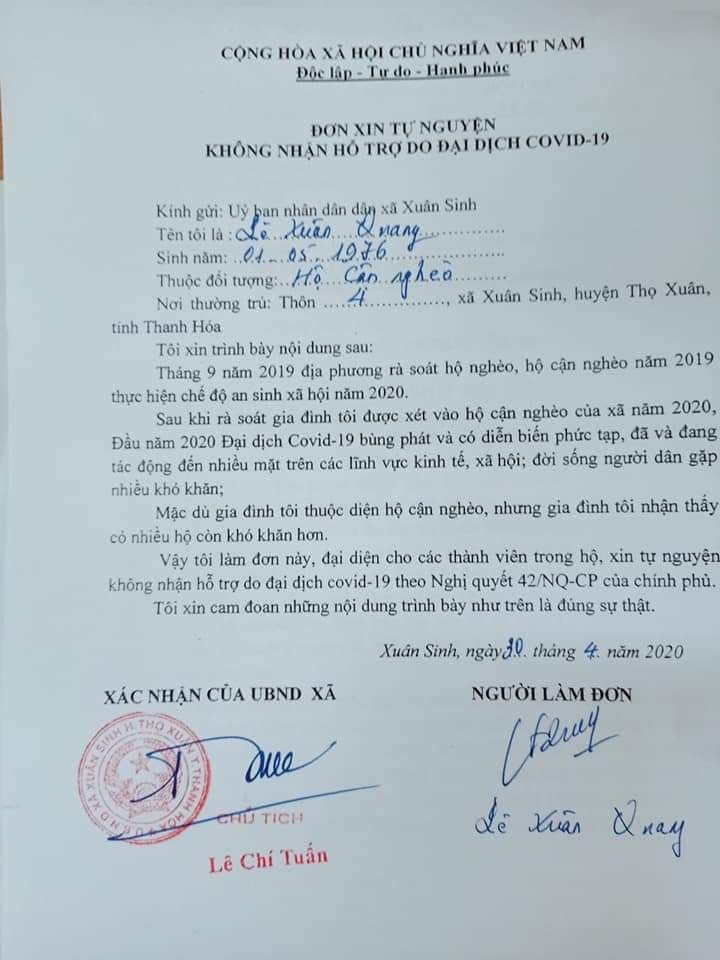 CỘNG HÒA XÃ HỘI CHỦ NGHĨA VIỆT NAM
Độc lập - Tự do - Hạnh phúc
ĐƠN XIN TỰ NGUYỆN
KHÔNG NHẬN HỖ TRỢ DO ĐẠI DỊCH COVID-19
Kính gửi: Uỷ ban nhân dân dân xã Xuân Sinh
Tên tôi là : Lê Xuân Quang
Sinh năm: 01 - 05 - 1976
Thuộc đối tượng: Hộ Cận nghèo
Nơi thường trú: Thôn 4, xã Xuân Sinh, huyện Thọ Xuân,
tỉnh Thanh Hóa
Tôi xin trình bày nội dung sau:
Tháng 9 năm 2019 địa phương rà soát hộ nghèo, hộ cận nghèo năm 2019
thực hiện chế độ an sinh xã hội năm 2020.
Sau khi rà soát gia đình tôi được xét vào hộ cận nghèo của xã năm 2020,
Đầu năm 2020 Đại dịch Covid-19 bùng phát và có diễn biến phức tạp, đã và đang
tác động đến nhiều mặt trên các lĩnh vực kinh tế, xã hội; đời sống người dân gặp
nhiều khó khăn;
Mặc dù gia đình tôi thuộc diện hộ cận nghèo, nhưng gia đình tôi nhận thấy
có nhiều hộ còn khó khăn hơn.
Vậy tôi làm đơn này, đại diện cho các thành viên trong hộ, xin tự nguyện
không nhận hỗ trợ do đại dịch covid-19 theo Nghị quyết 42/NQ-CP của chính phủ.
Tôi xin cam đoan những nội dung trình bày như trên là đúng sự thật.
Xuân Sinh, ngày 30. tháng 4. năm 2020
XÁC NHẬN CỦA UBND XÃ
NGƯỜI LÀM ĐƠN
U.B.N.D XÃ XUÂN SINH H.THỌ XUÂN T.THANH HÓA
CHỦ TỊCH
Lê Chí Tuấn
Lê Xuân Quang